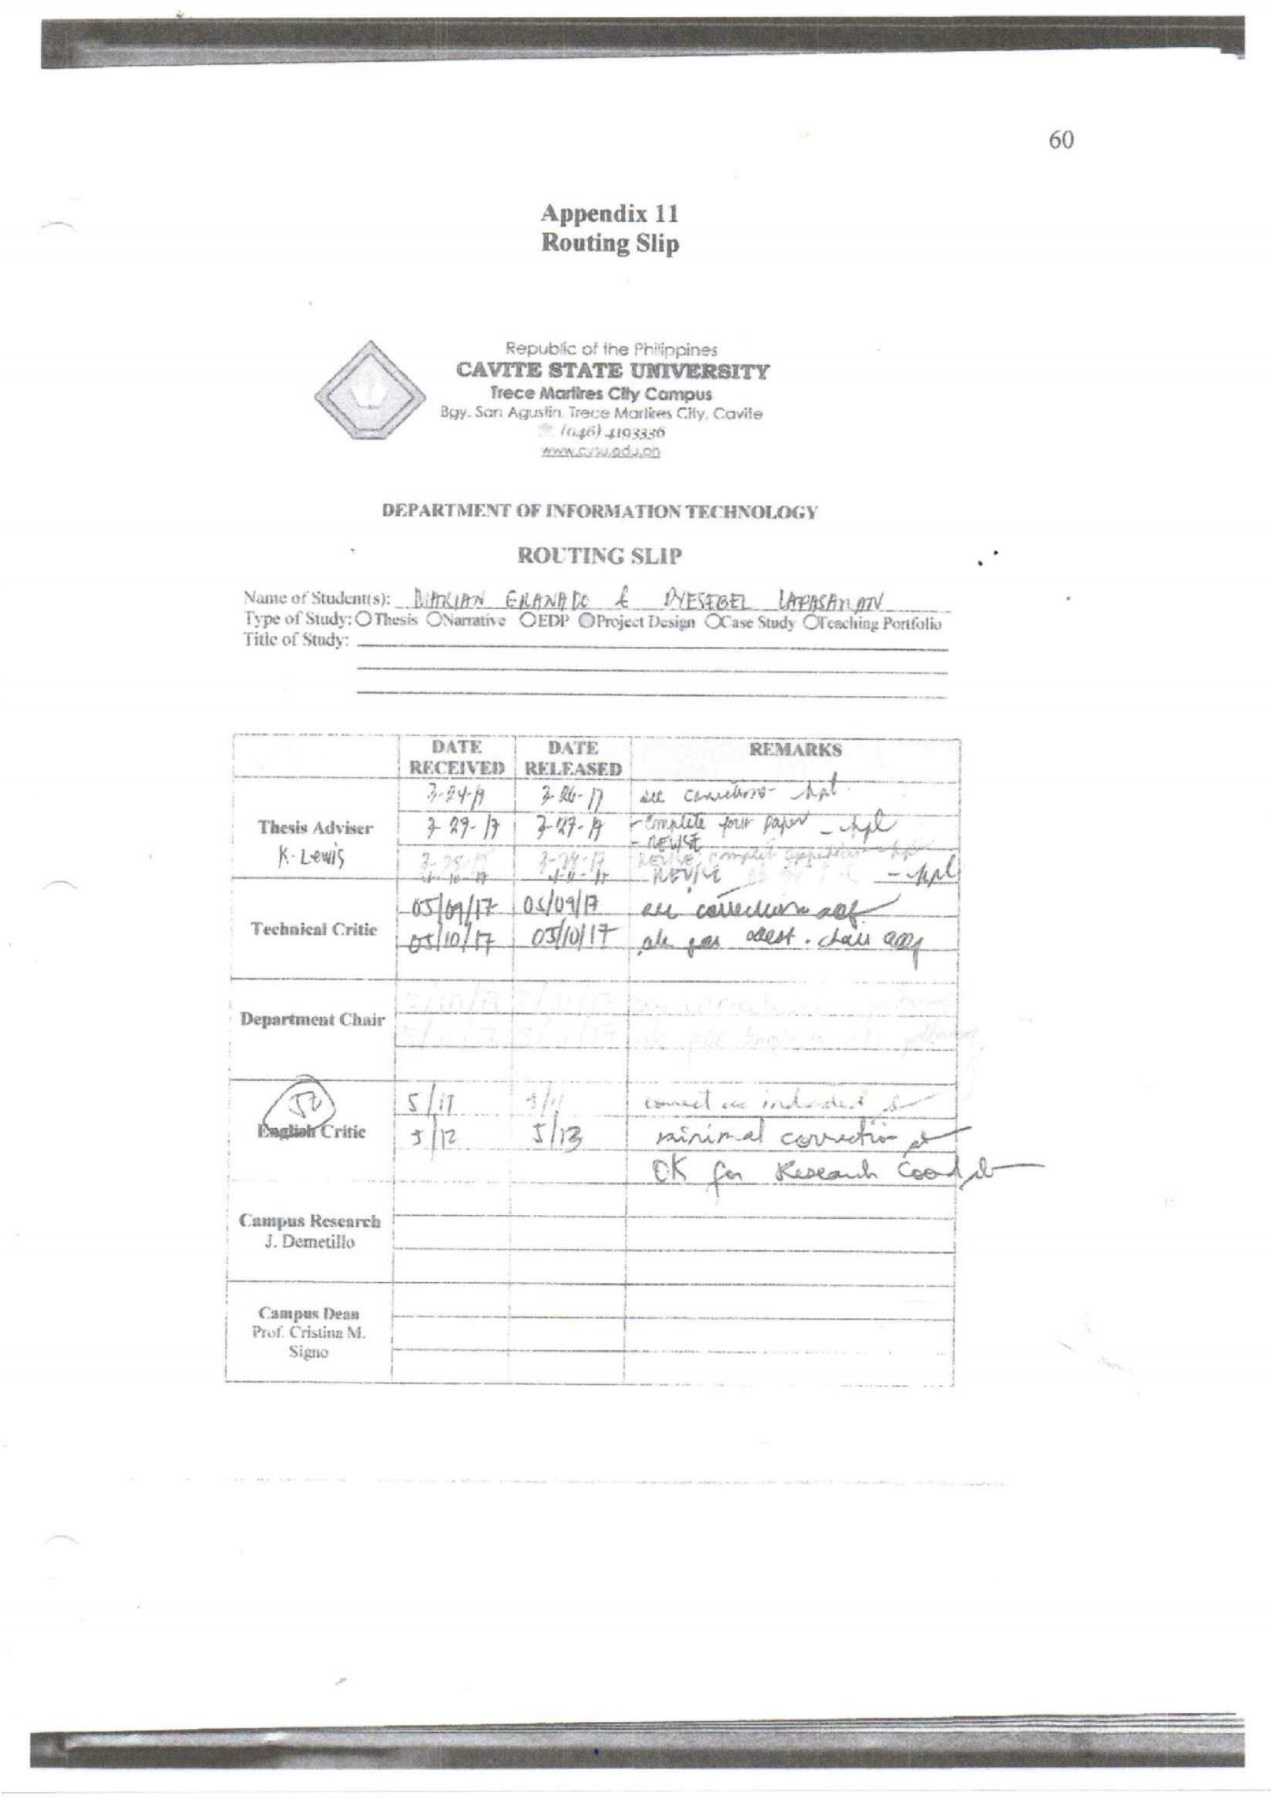 60
Appendix 11
Routing Slip
Republic of the Philippines
CAVITE STATE UNIVERSITY
Trece Martires City Campus
Bgy. San Agustin, Trece Martires City, Cavite
☏ (046) 4193336
www.cvsu.edu.ph
DEPARTMENT OF INFORMATION TECHNOLOGY
ROUTING SLIP
Name of Student(s): MARIAN GRANADO & DYESEBEL
Type of Study: Thesis Narrative EDP Project Design Case Study Teaching Portfolio
Title of Study:
DATE RECEIVED DATE RELEASED REMARKS
Thesis Adviser
K. Lewis
3-24-17 3-26-17 see corrections
3-29-17 - Complete your paper
- REVISE
REVISE, complete
- REVISE
Technical Critic
05/09/17 05/09/17 see corrections
05/10/17 05/10/17 ok for dept. chair
Department Chair
corrections
ok for English
English Critic
5/11 5/11 correct as indicated
5/12 5/13 minimal correction
OK for Research Coord
Campus Research
J. Demetillo
Campus Dean
Prof. Cristina M.
Signo